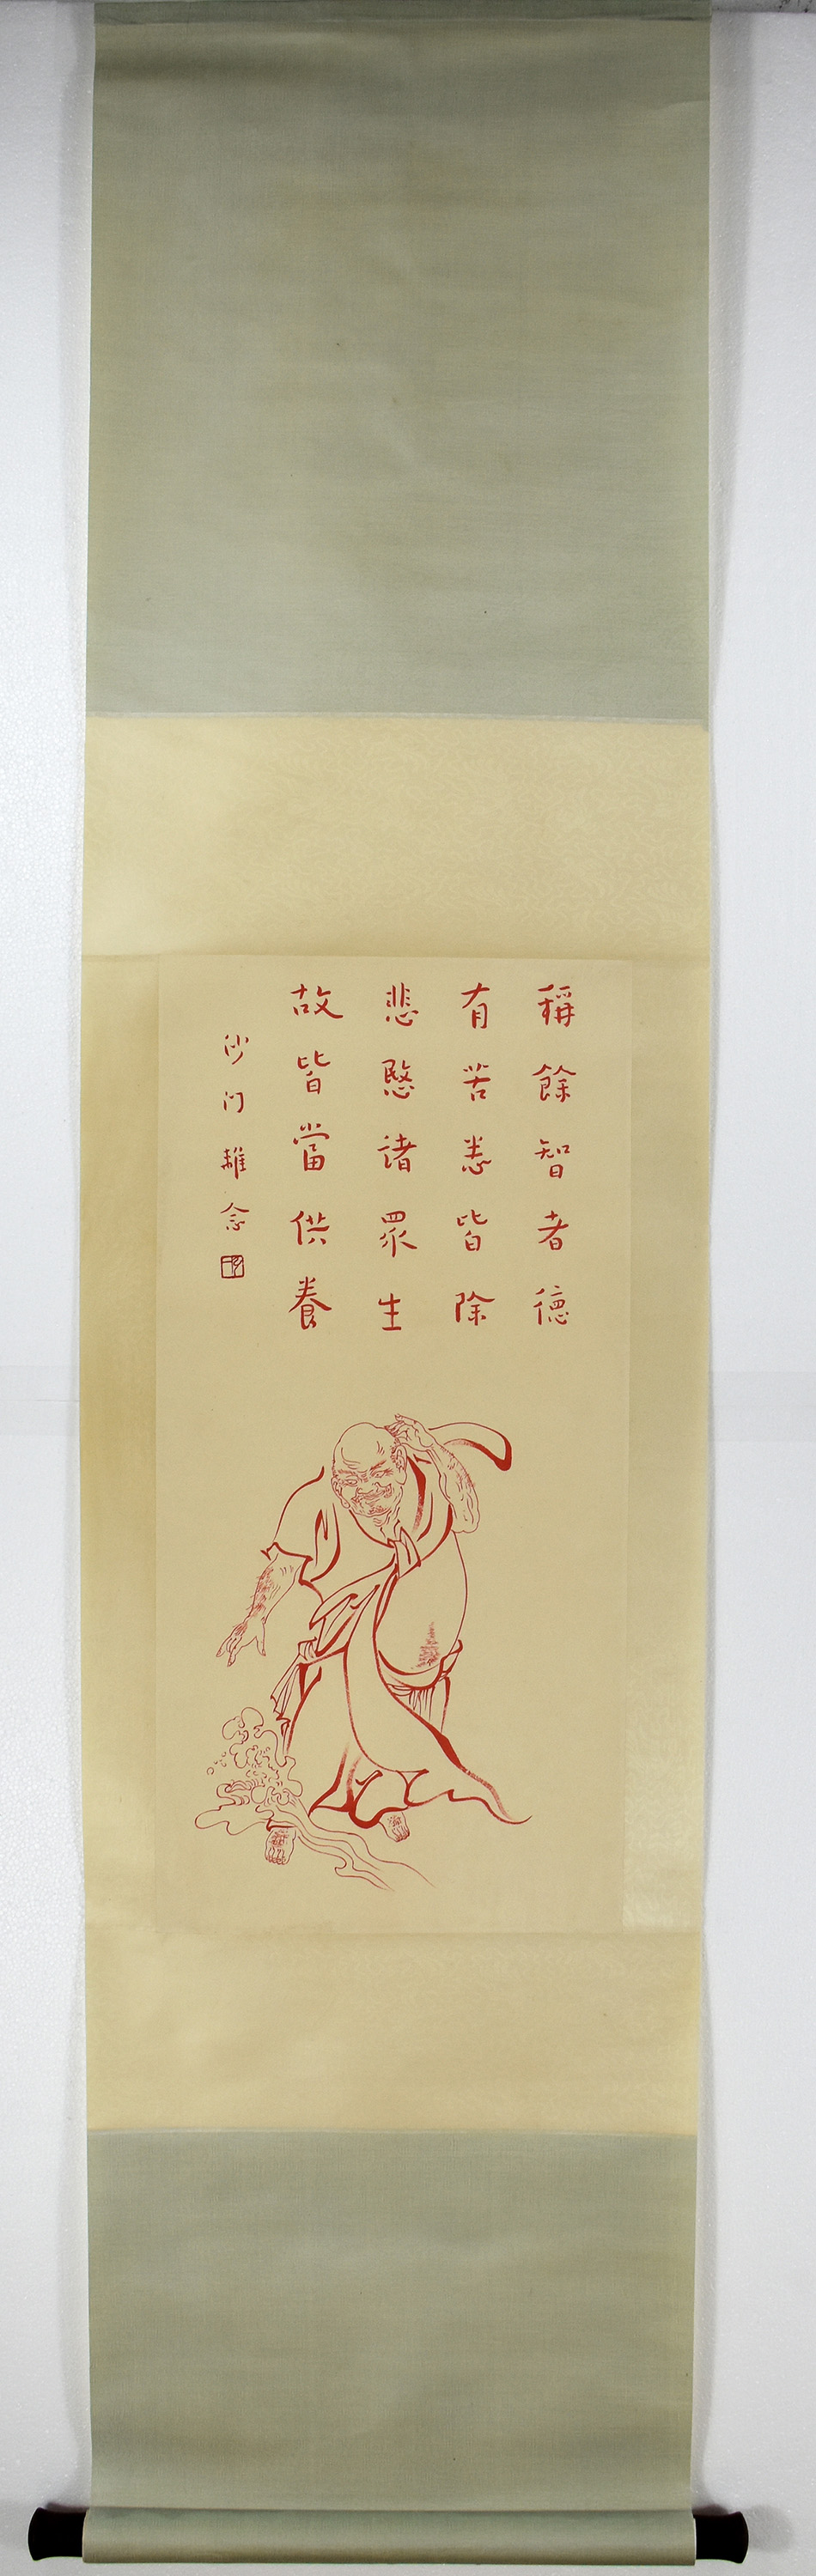 稱餘智者德
有苦悉皆除
悲愍諸眾生
故皆當供養
沙门離念